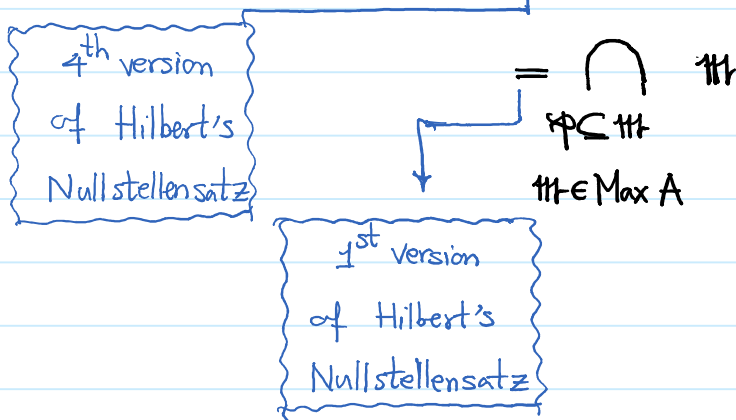 4th version
of Hilbert's
Nullstellensatz
= ⋂ 𝔪
𝔭 ⊆ 𝔪
𝔪 ∈ Max A
1st version
of Hilbert's
Nullstellensatz